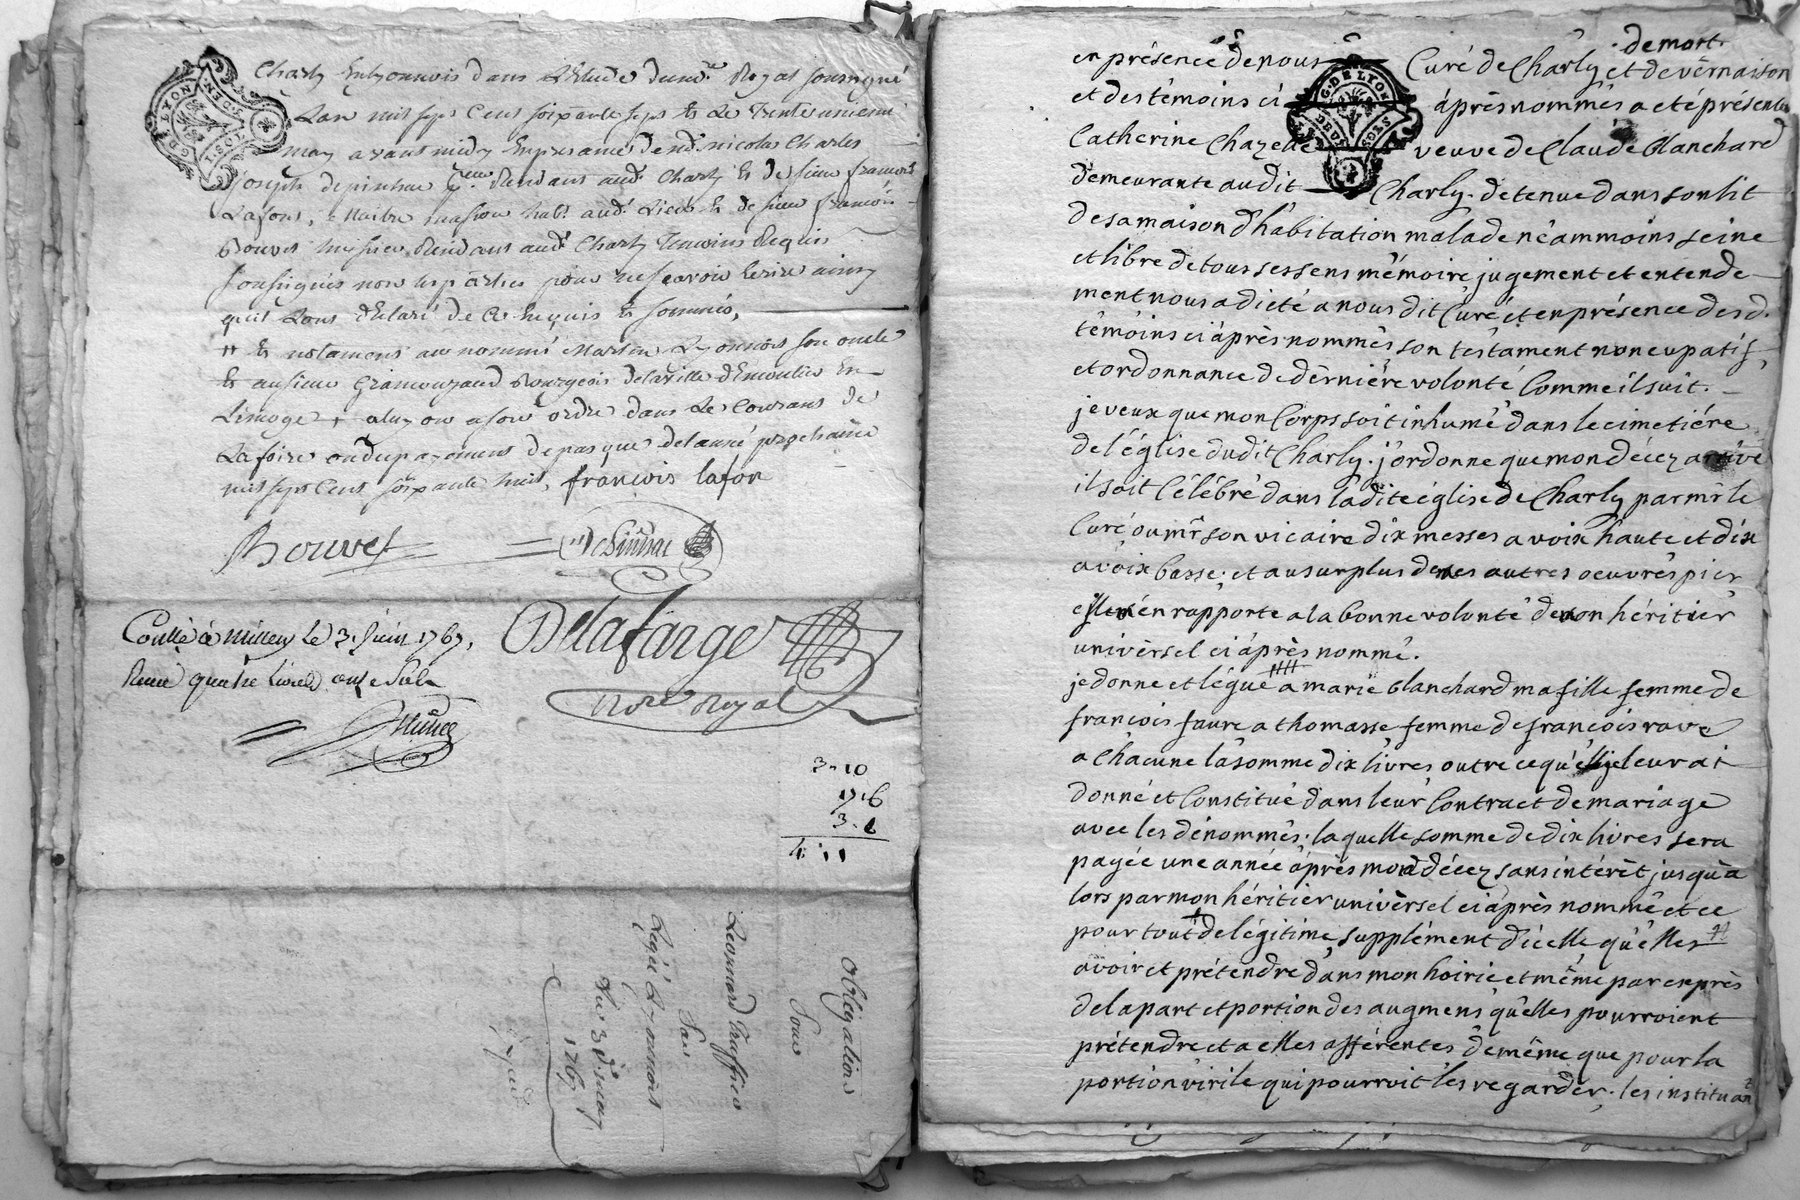 Charly En Lyonnois dans L'Etude du no.re Royal soussigné
L'an mil sept Cent soixante sept & Le Trente unieme
may avant midy En presance de nd. nicolas Charles
Joseph Residant aud. Charly & de sieur francois
Lafont, Maitre masson hab.t aud. Lieu & de sieur francois
Bouvet Residant aud. Charly Temoins Requis
soussignés non les parties pour ne scavoir Ecrire ainsy
quil Lont declaré de ce Enquis & sommés,
# & notament au nommé Martin Lyonnois son oncle
& au sieur Bourgeois de la ville En
Limoge + a luy ou a son ordre dans Le Courant de
La foire ou du payement de pasques de lanné prochaine
mil sept Cent soixante huit, francois lafon
Bouvet
Delafarge
Not.re Royal
Conllé à millery le 3. Juin 1767,
Receu quatre livres onze sols
3-10
17·6
3·6
4·11
Obligation
Pour
Leonnard
Par
Lyonnois
Du 31 may
1767
GEN. DE LYON
de mort.
en présence de nous Curé de Charly et de vernaison
et des témoins ci après nommés a eté présente
Catherine Chazelle veuve de Claude Blanchard
demeurante audit Charly. detenue dans son lit
de sa maison d'habitation malade néammoins seine
et libre de tous ses sens mémoire jugement et entende-
ment nous a dicté a nous dit Curé et en présence des d.
témoins ci après nommés son testament noncupatif,
et ordonnance de dernière volonté Comme il suit.
je veux que mon Corps soit inhumé dans le cimetiére
de l'église dudit Charly. j'ordonne que mon décez arrivé
il soit Célébré dans ladite église de Charly par mr le
Curé ou mr son vicaire dix messes a voix haute et dix
a voix basse; et au surplus de mes autres oeuvres pies
m'en rapporte a la bonne volonté de mon héritier
univèrsel ci après nommé.
je donne et légue a marie blanchard ma fille femme de
francois faure a thomasse femme de francois rave
a chacune la somme dix livres outre ce que je leur ai
donné et Constitué dans leur Contract de mariage
avec les dénommés; laquelle somme de dix livres sera
payée une année après mon décez sans intérêt jusqu'à
lors par mon héritier univèrsel ci après nommé et ce
pour tout de légitime, supplément d'icelle qu'elles #
avoir et prétendre dans mon hoirie et même par exprès
de la part et portion des augmens qu'elles pourroient
prétendre et a elles afférentes de même que pour la
portion virile qui pourroit les regarder. les instituant
G. DE LYON
DEUX SOLS